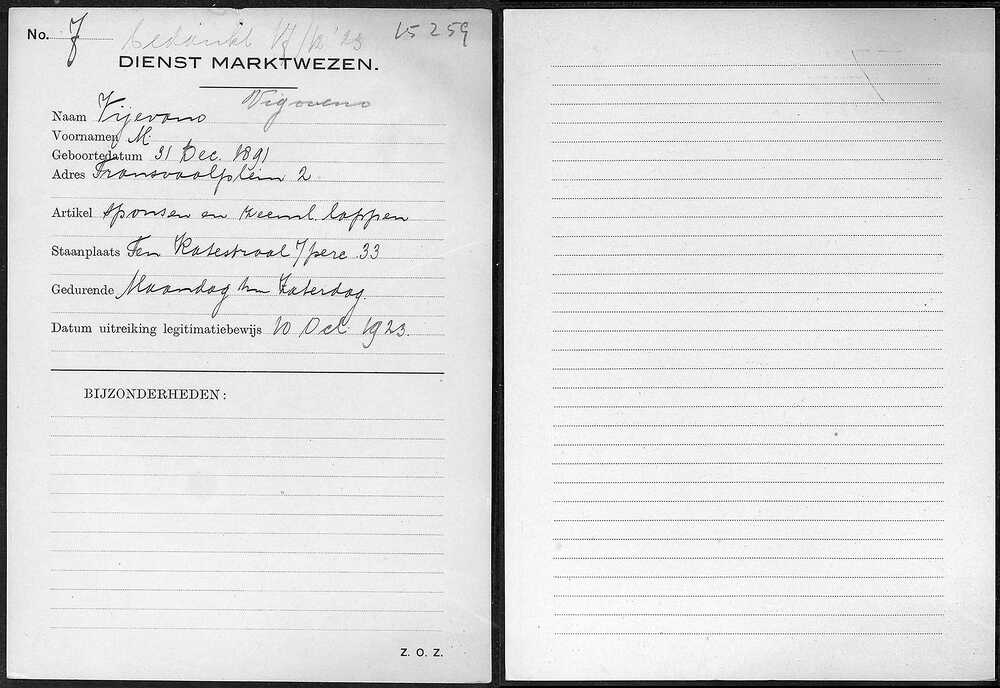 No. 7 Bedankt 17/12 '23 15259
DIENST MARKTWEZEN.
Vigoveno
Naam Vijevano
Voornamen M.
Geboortedatum 31 Dec. 1891
Adres Transvaalplein 2
Artikel sponsen en zeeml. lappen
Staanplaats Ten Katestraat 33
Gedurende Maandag t/m Zaterdag.
Datum uitreiking legitimatiebewijs 10 Oct. 1923.
BIJZONDERHEDEN:
Z. O. Z.